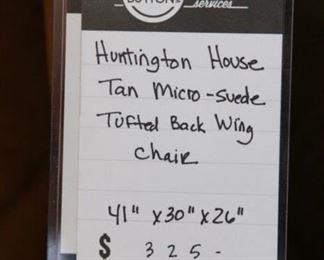 BUTTONS
services
Huntington House
Tan Micro-suede
Tufted Back Wing
Chair
41" x30"x26"
$ 325-